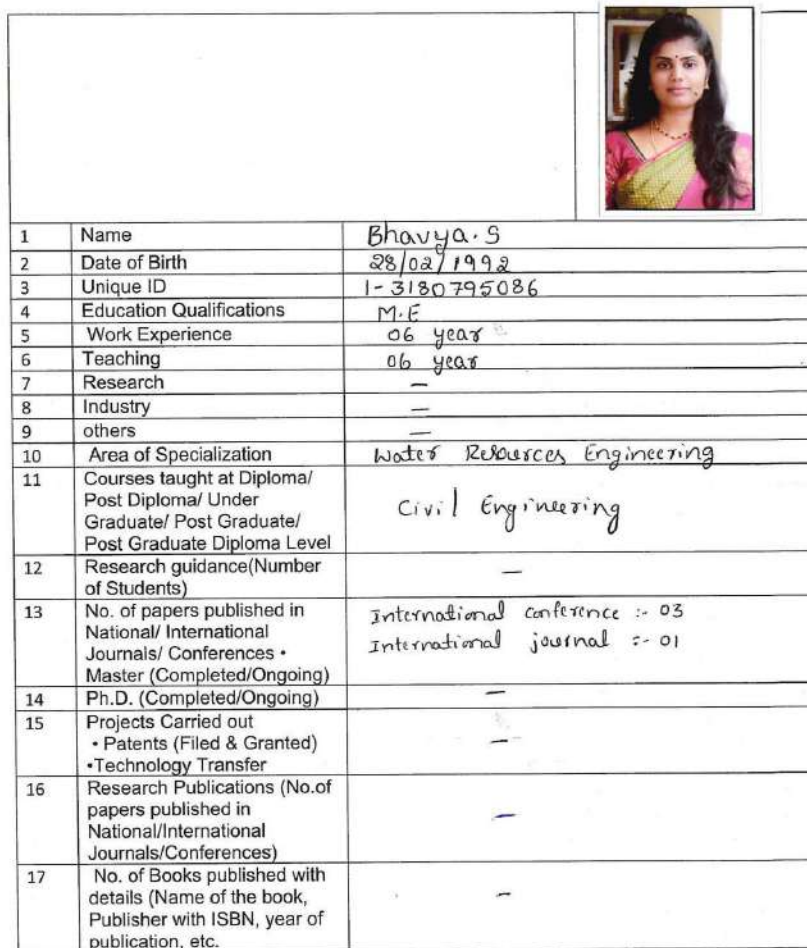 1 Name Bhavya. S
2 Date of Birth 28/02/1992
3 Unique ID 1-3180795086
4 Education Qualifications M.E
5 Work Experience 06 year
6 Teaching 06 year
7 Research —
8 Industry —
9 others —
10 Area of Specialization Water Resources Engineering
11 Courses taught at Diploma/
Post Diploma/ Under
Graduate/ Post Graduate/
Post Graduate Diploma Level
Civil Engineering
12 Research guidance(Number
of Students)
—
13 No. of papers published in
National/ International
Journals/ Conferences •
Master (Completed/Ongoing)
International conference :- 03
International journal :- 01
14 Ph.D. (Completed/Ongoing) —
15 Projects Carried out
• Patents (Filed & Granted)
•Technology Transfer
—
16 Research Publications (No.of
papers published in
National/International
Journals/Conferences)
—
17 No. of Books published with
details (Name of the book,
Publisher with ISBN, year of
publication, etc.
-